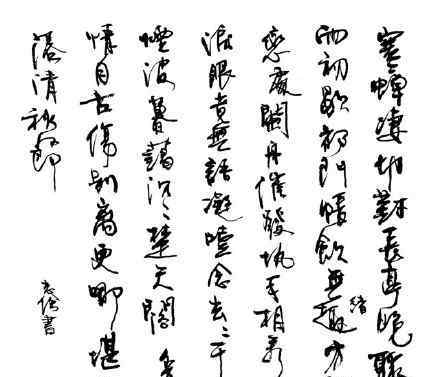 寒蟬淒切對長亭晚驟
雨初歇都門帳飲無趣方
緒
戀處闌舟催發執手相看
淚眼竟無語凝噎念去々千
煙波暮藹沉々楚天闊多
情自古傷別離更哪堪
落清秋節
書